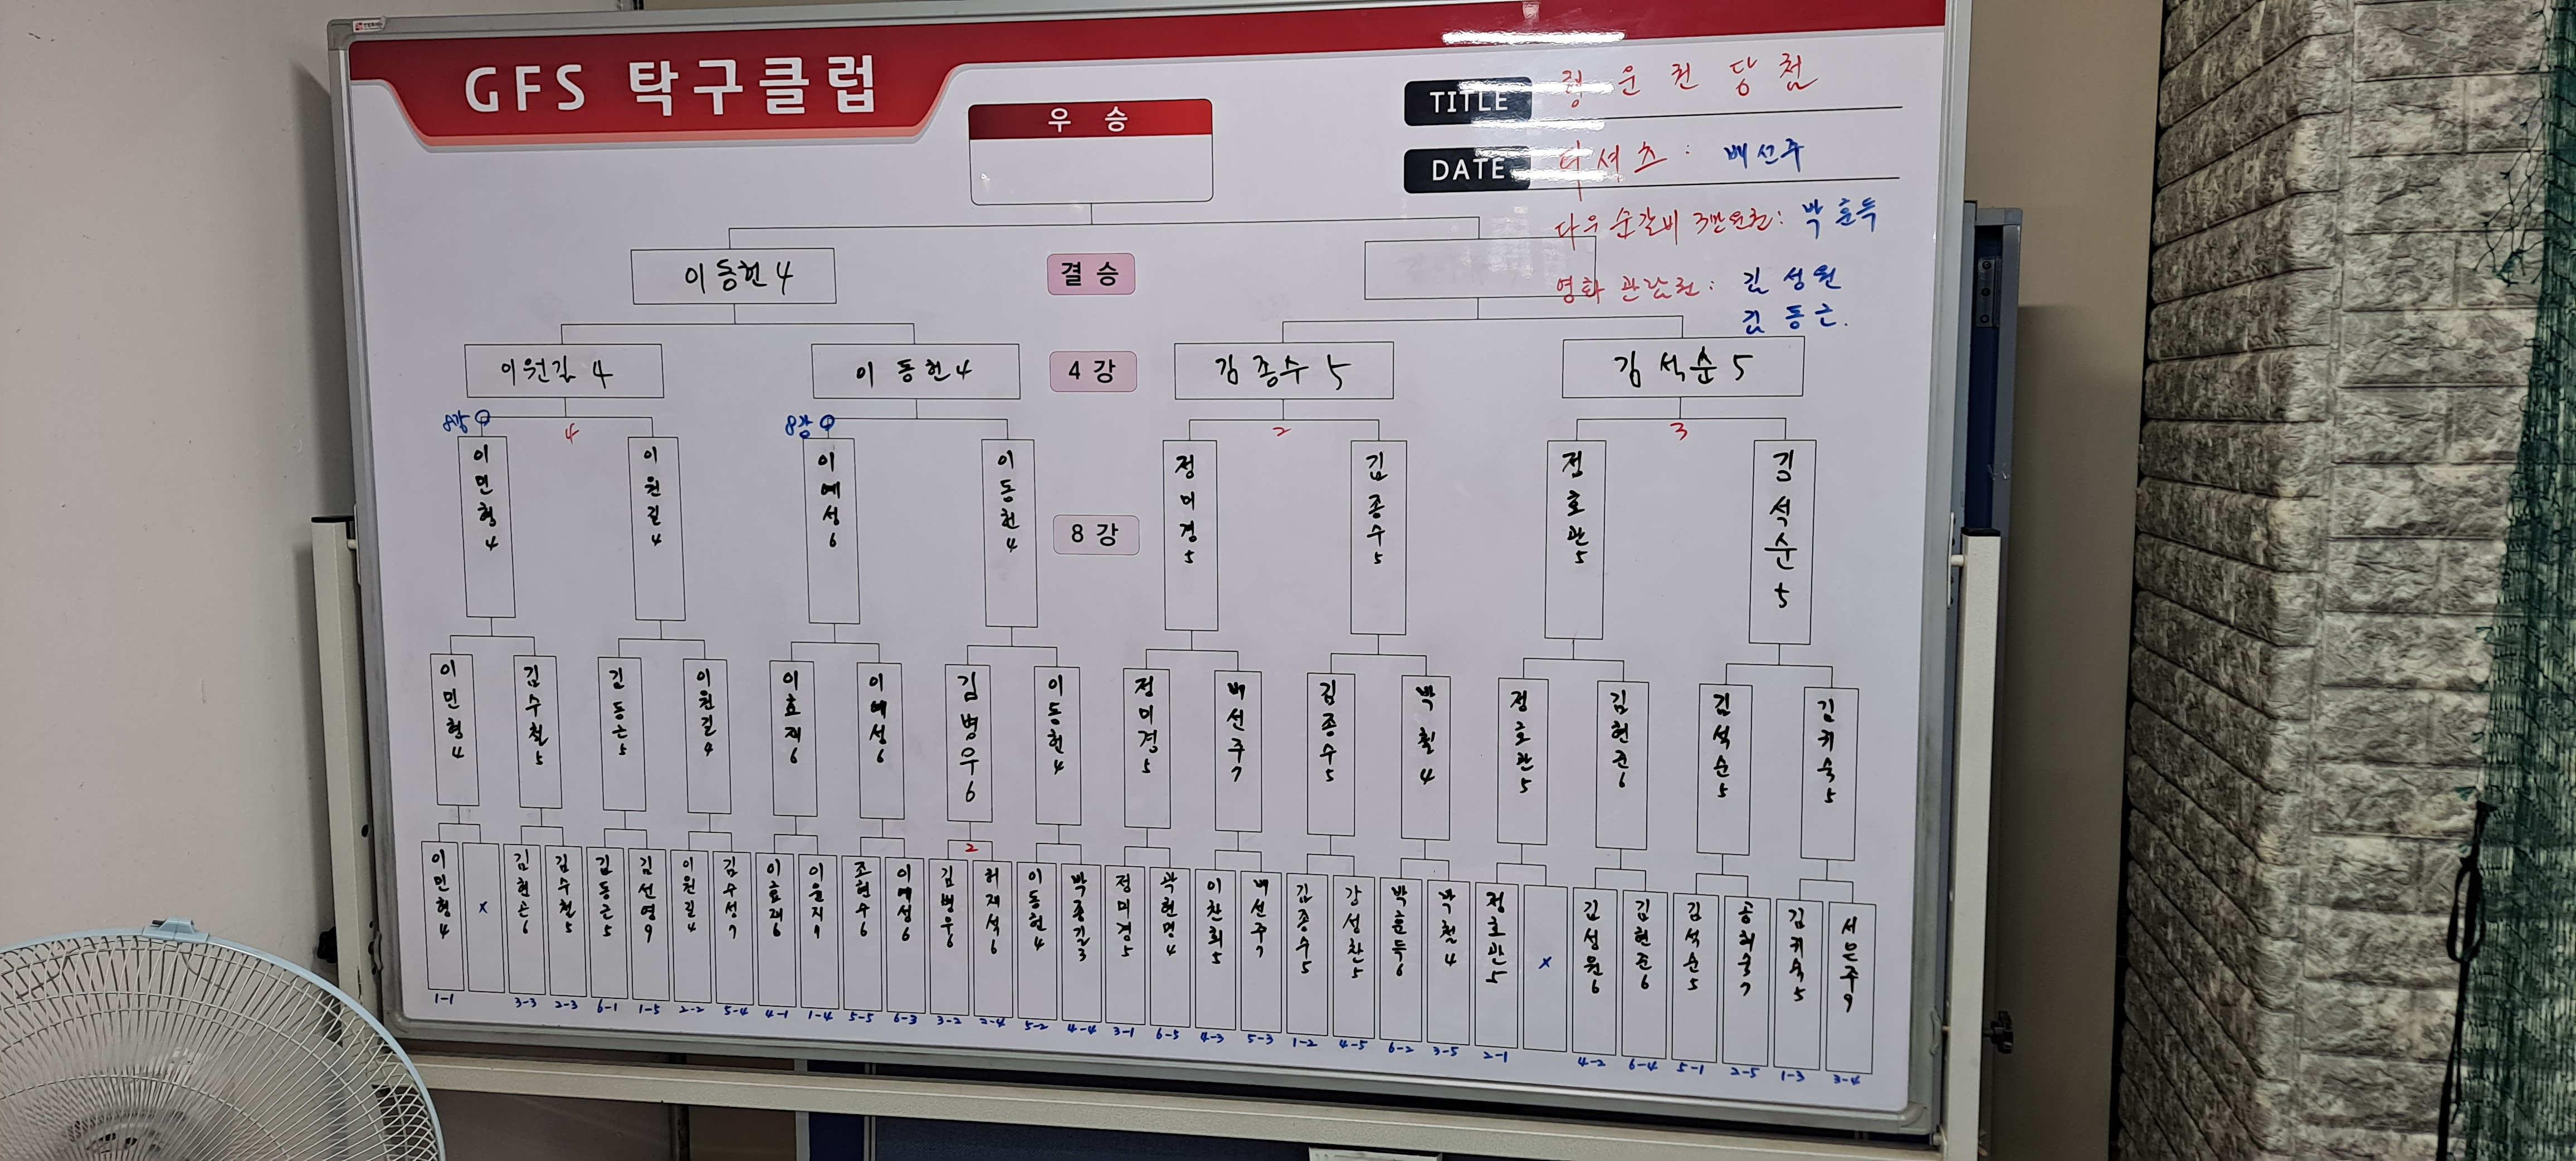 GFS 탁구클럽
우 승
TITLE 행운권 당첨
DATE 티셔츠 : 배선주
다우 순갈비 3만원권 : 박훈득
영화 관람권 : 김성원
김동근.
이동헌 4
결 승
이원길 4
이동헌 4
4 강
김종수 5
김석순 5
8강
4
8강
2
3
이민형 4
이원길 4
이예성 6
이동헌 4
8 강
정미경 5
김종수 5
정호관 5
김석순 5
이민형 4
김수철 5
김동근 5
이원길 4
이효재 6
이예성 6
김병우 6
이동헌 4
정미경 5
배선주 7
김종수 5
박철 4
정호관 5
김현준 6
김석순 5
김귀숙 5
2
이민형 4
x
김현손 6
김수철 5
김동근 5
김선영 9
이원길 4
김수성 7
이효재 6
이윤지 9
조현수 6
이예성 6
김병우 6
허재석 6
이동헌 4
박종길 3
정미경 5
곽현명 4
이찬희 5
배선주 7
김종수 5
강성찬 5
박훈득 6
박철 4
정호관 5
x
김성원 6
김현준 6
김석순 5
공희숙 7
김귀숙 5
서은주 9
1-1 3-3 2-3 6-1 1-5 2-2 5-4 4-1 1-4 5-5 6-3 3-2 2-4 5-2 4-4 3-1 6-5 4-3 5-3 1-2 4-5 6-2 3-5 2-1 4-2 6-4 5-1 2-5 1-3 3-4